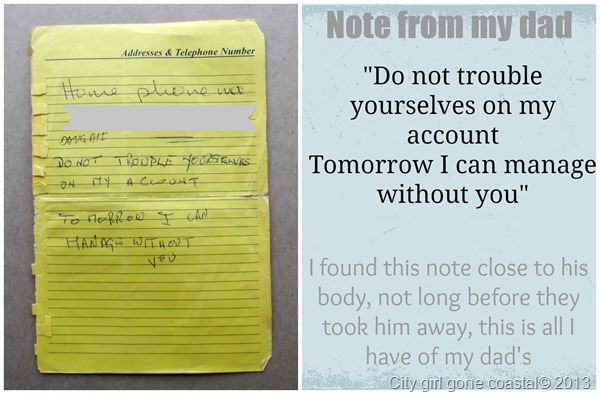 Addresses & Telephone Number
Home phone
DO NOT TROUBLE YOURSELVES
ON MY ACCOUNT
TOMORROW I CAN
MANAGE WITHOUT
YOU
Note from my dad
"Do not trouble
yourselves on my
account
Tomorrow I can manage
without you"
I found this note close to his
body, not long before they
took him away, this is all I
have of my dad's
City girl gone coastal© 2013